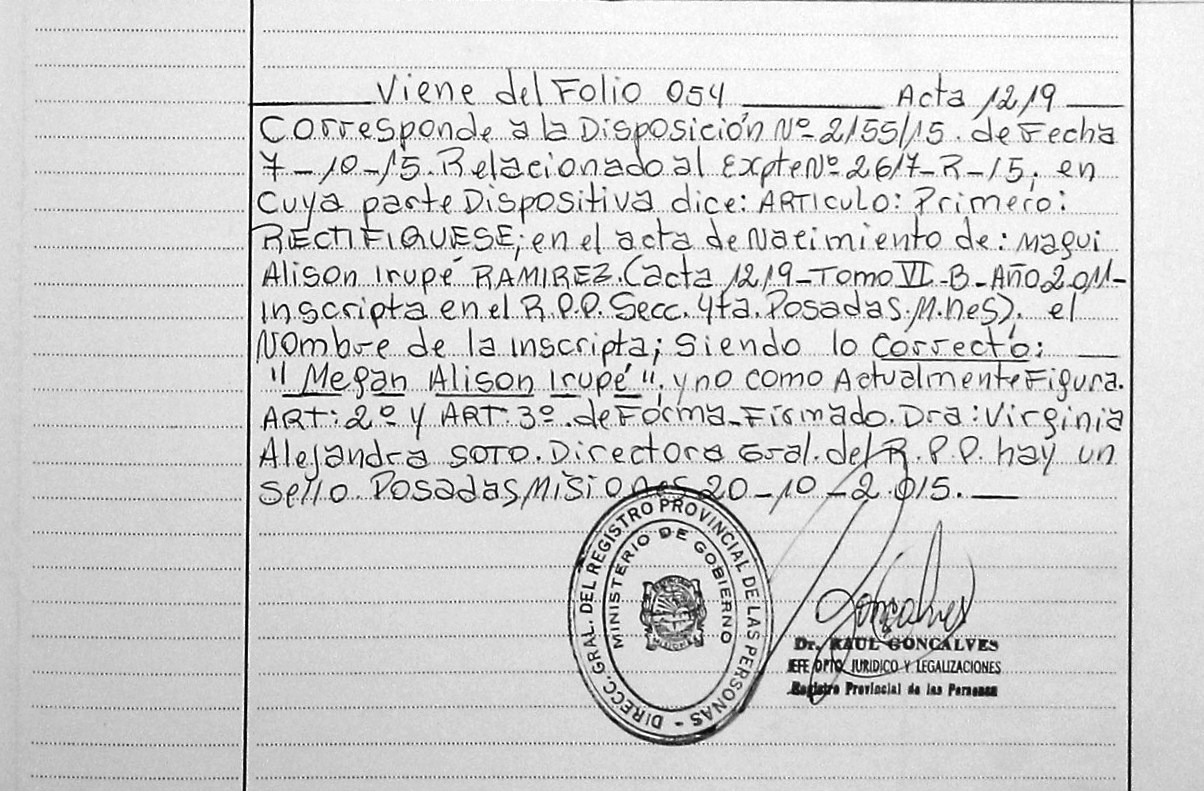 Viene del Folio 054 Acta 1219
Corresponde a la Disposición Nº 2155/15. de Fecha
7-10-15. Relacionado al Expte Nº 2617-R-15, en
Cuya parte Dispositiva dice: ARTICULO: Primero:
RECTIFIQUESE; en el acta de Nacimiento de: Magui
Alison Irupé RAMIREZ. (acta 1219-Tomo VI-B-Año 2011-
inscripta en el R.P.P. Secc. 4ta. Posadas. M.nes). el
Nombre de la inscripta; Siendo lo Correcto:
"Megan Alison Irupé". y no como Actualmente Figura.
ART: 2º y ART: 3º. de Forma-Firmado. Dra: Virginia
Alejandra SOTO. Directora Gral. del R.P.P. hay un
Sello. Posadas, Misiones 20-10-2015.
DIRECC. GRAL. DEL REGISTRO PROVINCIAL DE LAS PERSONAS -
MINISTERIO DE GOBIERNO
MISIONES
Goncalves
Dr. RAUL GONCALVES
JEFE DPTO. JURIDICO Y LEGALIZACIONES
Registro Provincial de las Personas